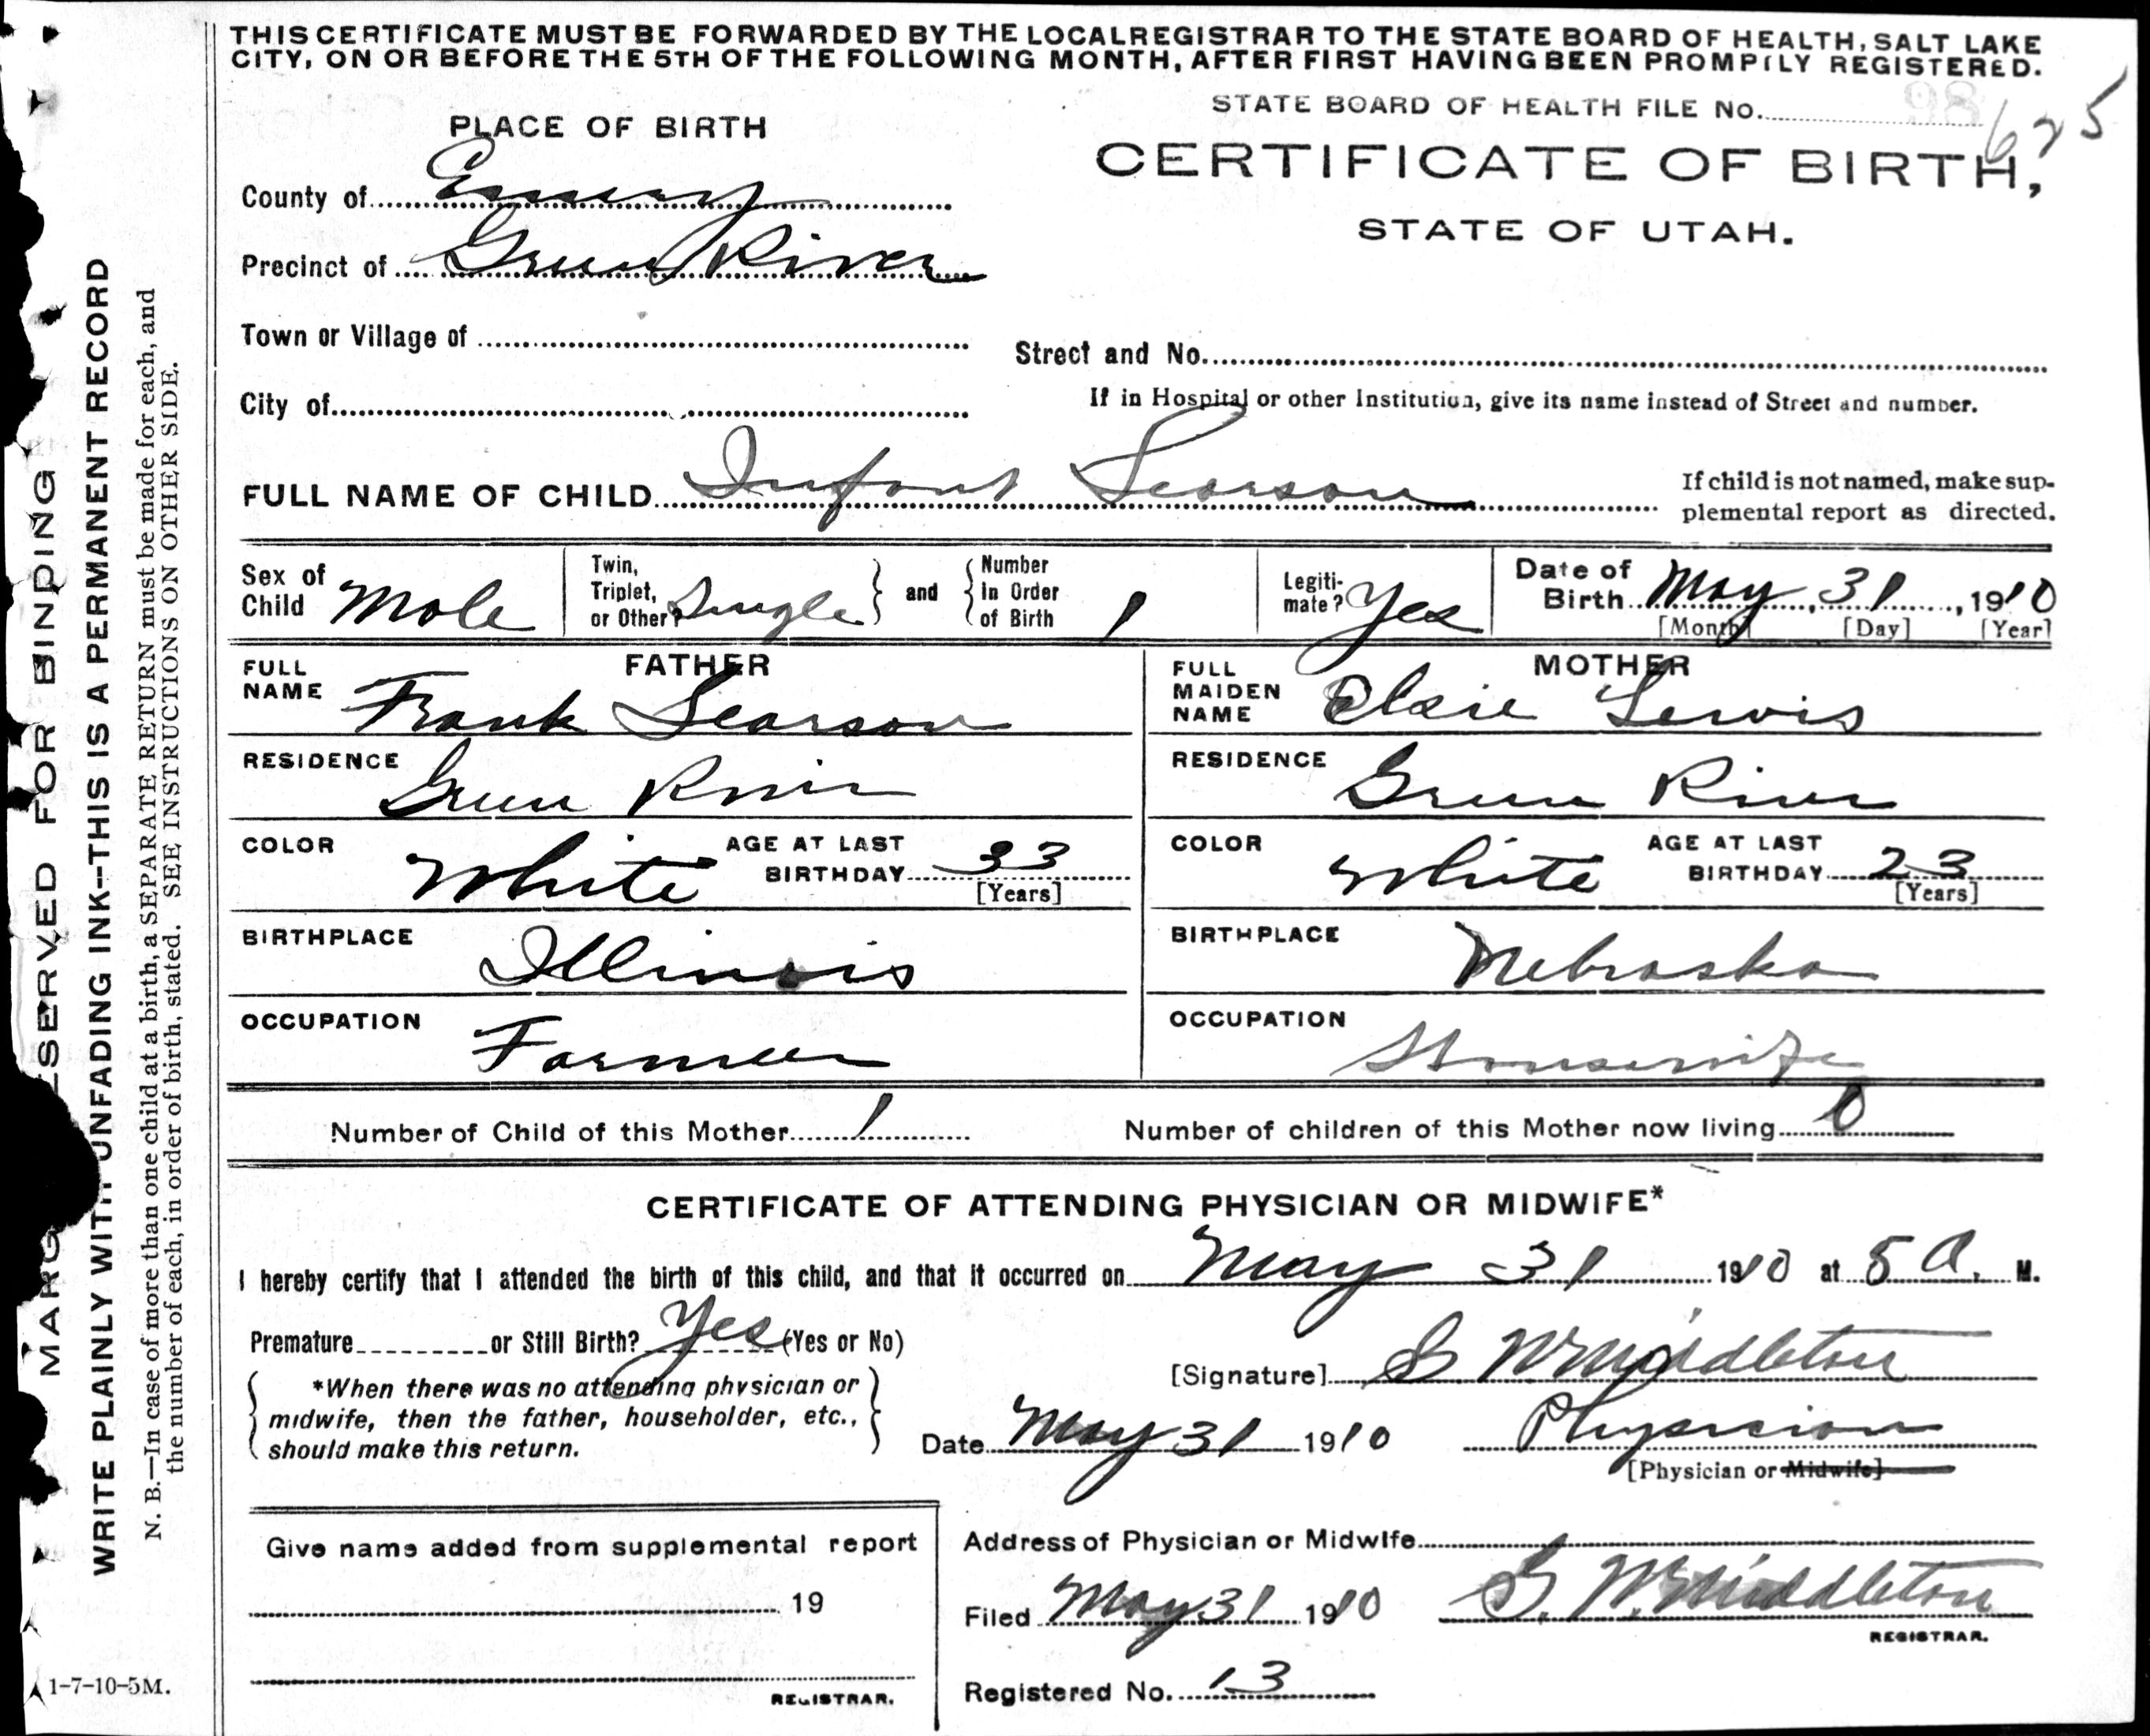 THIS CERTIFICATE MUST BE FORWARDED BY THE LOCAL REGISTRAR TO THE STATE BOARD OF HEALTH, SALT LAKE
CITY, ON OR BEFORE THE 5TH OF THE FOLLOWING MONTH, AFTER FIRST HAVING BEEN PROMPTLY REGISTERED.
STATE BOARD OF HEALTH FILE No. 625
PLACE OF BIRTH
CERTIFICATE OF BIRTH,
STATE OF UTAH.
County of Emery
Precinct of Green River
Town or Village of
Street and No.
City of
If in Hospital or other Institution, give its name instead of Street and number.
FULL NAME OF CHILD Infant Searson
If child is not named, make sup-
plemental report as directed.
Sex of Child Male
Twin, Triplet, or Other? Single and Number In Order of Birth 1
Legiti-mate? Yes
Date of Birth May, 31, 1910
[Month] [Day] [Year]
FATHER
FULL NAME Frank Searson
RESIDENCE Green River
COLOR White AGE AT LAST BIRTHDAY 33
[Years]
BIRTHPLACE Illinois
OCCUPATION Farmer
MOTHER
FULL MAIDEN NAME Elsie Lewis
RESIDENCE Green River
COLOR White AGE AT LAST BIRTHDAY 23
[Years]
BIRTHPLACE Nebraska
OCCUPATION Housewife
Number of Child of this Mother 1
Number of children of this Mother now living 0
CERTIFICATE OF ATTENDING PHYSICIAN OR MIDWIFE*
I hereby certify that I attended the birth of this child, and that it occurred on May 31 1910 at 5 A. M.
Premature or Still Birth? Yes (Yes or No)
*When there was no attending physician or
midwife, then the father, householder, etc.,
should make this return.
[Signature] G. W. Middleton
Date May 31 1910 Physician
[Physician or Midwife]
Give name added from supplemental report
19
REGISTRAR.
Address of Physician or Midwife
Filed May 31 1910 G. W. Middleton
REGISTRAR.
Registered No. 13
MARG SERVED FOR BINDING
WRITE PLAINLY WITH UNFADING INK--THIS IS A PERMANENT RECORD
N. B.—In case of more than one child at a birth, a SEPARATE RETURN must be made for each, and
the number of each, in order of birth, stated. SEE INSTRUCTIONS ON OTHER SIDE.
1-7-10-5M.